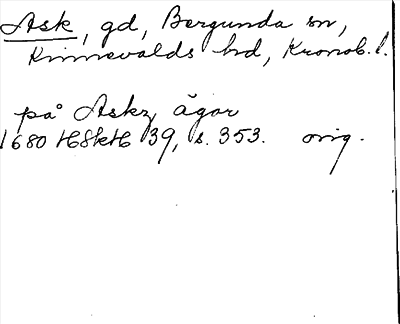 Ask, gd, Bergunda sn,
Kinnevalds hd, Kronob. l.
på Askz ägor
1680 HSkH 39, s. 353. orig.